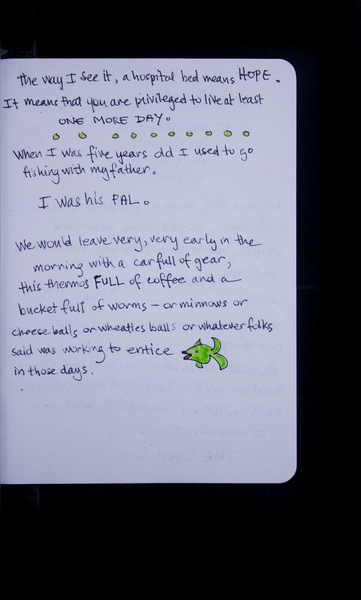 The way I see it, a hospital bed means HOPE.
It means that you are privileged to live at least
ONE MORE DAY.
When I was five years old I used to go
fishing with my father.
I was his PAL.
We would leave very, very early in the
morning with a car full of gear,
this thermos FULL of coffee and a
bucket full of worms – or minnows or
cheese balls or wheaties balls or whatever folks
said was working to entice
in those days.